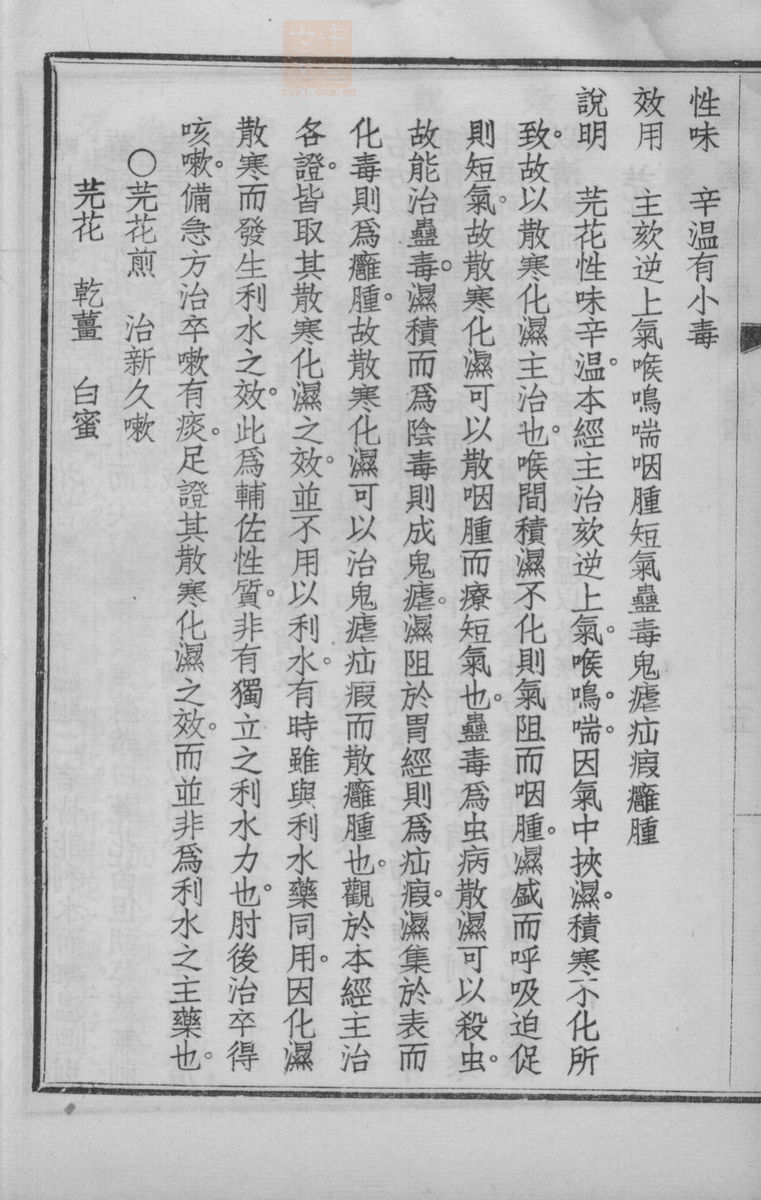 性味　辛温有小毒
效用　主欬逆上氣喉鳴喘咽腫短氣蠱毒鬼瘧疝瘕癰腫
說明　芫花性味辛温。本經主治欬逆上氣。喉鳴。喘。因氣中挾濕。積寒不化所
致。故以散寒化濕主治也。喉間積濕不化則氣阻而咽腫。濕盛而呼吸迫促
則短氣。故散寒化濕可以散咽腫而療短氣也。蠱毒爲虫病散濕可以殺虫。
故能治蠱毒。濕積而爲陰毒則成鬼瘧。濕阻於胃經則爲疝瘕。濕集於表而
化毒則爲癰腫。故散寒化濕可以治鬼瘧疝瘕而散癰腫也。觀於本經主治
各證。皆取其散寒化濕之效。並不用以利水。有時雖與利水藥同用。因化濕
散寒而發生利水之效。此爲輔佐性質。非有獨立之利水力也。肘後治卒得
咳嗽。備急方治卒嗽有痰。足證其散寒化濕之效。而並非爲利水之主藥也。
〇芫花煎　治新久嗽
芫花　乾薑　白蜜